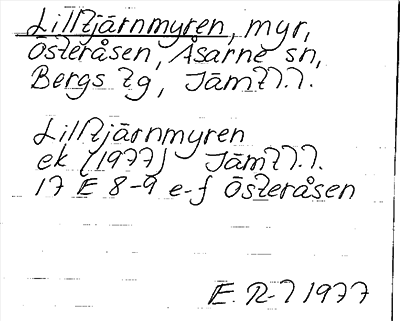 Lilltjärnmyren, myr,
Österåsen, Åsarne sn,
Bergs tg, Jämtl.l.
Lilltjärnmyren
ek (1977) Jämtl.l.
17 E 8-9 e-f Österåsen
E. R-l 1977